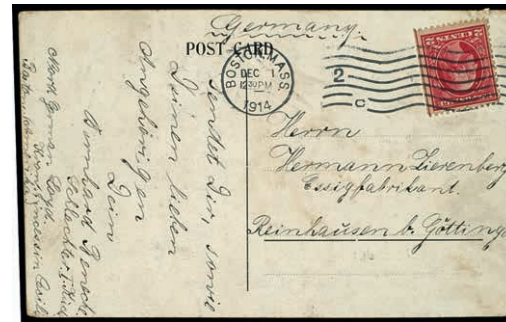 Germany
POST CARD
BOSTON, MASS.
DEC 1
12 30 PM
1914
2
C
Herrn
Hermann Zierenberg
Essigfabrikant.
Reinhausen b. Götting
sendet Dir, sowie
Deinen lieben
Angehörigen
Dein
Bernhard
North German Lloyd